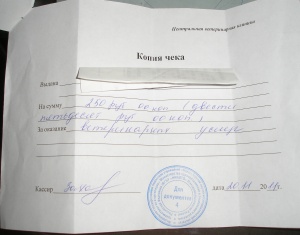 Центральная ветеринарная клиника
Копия чека
Выдана
На сумму 250 руб 00 коп (двести
пятьдесят руб 00 коп)
За оказание ветеринарных услуг
Кассир дата 20.11 20
Для
документов